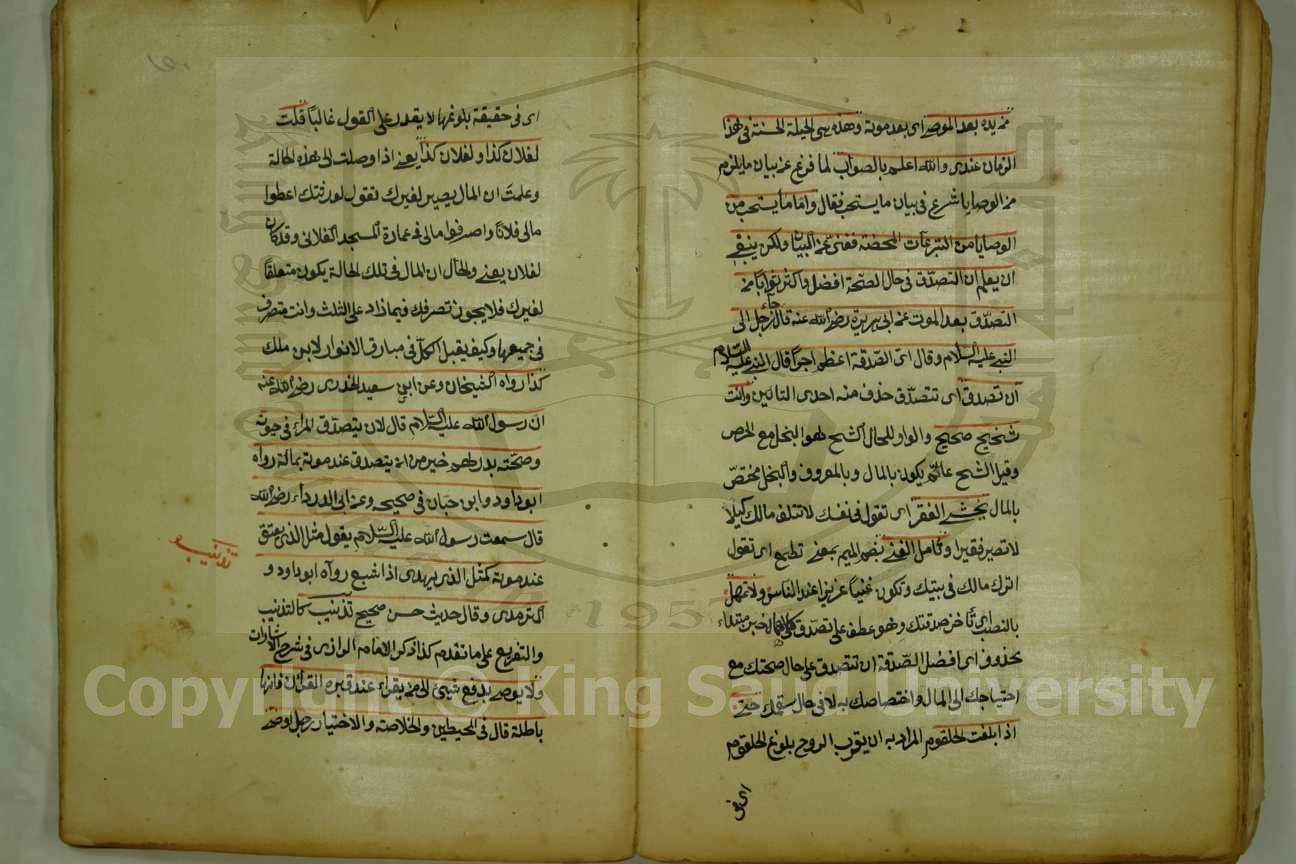 يزيده بعد الموصى اى بعد موته وهذه هى الحيلة الحسنة فى هذا
الزمان عندى والله اعلم بالصواب لما فرغ عن بيان ما يلزم
من الوصايا شرع فى بيان ما يستحب فقال واما ما يستحب من
الوصايا من التبرعات المحضة فغنى عن البيان ولكن ينبغى
ان يعلم ان التصدق فى حال الصحة افضل واكثر ثوابا من
التصدق بعد الموت عن ابى هريرة رضى الله عنه قال جاء رجل الى
النبى عليه السلام وقال اى الصدقة اعظم اجرا قال النبى عليه السلام
ان تصدق اى تتصدق حذف منه احدى التائين وانت
شحيح صحيح والواو للحال الشح هو البخل مع الحرص
وقيل الشح عام يكون بالمال وبالمعروف والبخل مختص
بالمال تخشى الفقر اى تقول فى نفسك لا تتلف مالك كيلا
لا تصير فقيرا وتأمل الغنى بضم الميم بمعنى تطمع اى تقول
اترك مالك فى بيتك وتكون غنيا عزيزا عند الناس ولا تمهل
بالنصب اى تأخر صدقتك وهو عطف على تصدق كلاهما خبر مبتداء
محذوف اى افضل الصدقة ان تتصدق على حال صحتك مع
احتياجك الى المال واختصاصك به لا فى حال سقمك حتى
اذا بلغت الحلقوم المراد به ان يقرب الروح بلوغ الحلقوم
اى فى حقيقة بلوغها لا يقدر على القول غالبا قلت
لفلان كذا ولفلان كذا يعنى اذا وصلت الى هذه الحالة
وعلمت ان المال يصير لغيرك تقول لورثتك اعطوا
مالى فلانا واصرفوا مالى فى عمارة المسجد الفلانى وقد كان
لفلان يعنى والحال ان المال فى تلك الحالة يكون متعلقا
لغيرك فلا يجوز تصرفك فيما زاد على الثلث وانت متصرف
فى جميعها وكيف يقبل الكل فى مبارق الانوار لابن ملك
كذا رواه الشيخان وعن ابى سعيد الخدرى رضى الله عنه
ان رسول الله عليه السلام قال لان يتصدق المرء فى حيوته
وصحته بدرهم خير من ان يتصدق عند موته بمائة رواه
ابو داود وابن حبان فى صحيحه وعن ابى الدرداء رضى الله
قال سمعت رسول الله عليه السلام يقول مثل الذى يعتق
عند موته كمثل الذى يهدى اذا شبع رواه ابو داود و
الترمدى وقال حديث حسن صحيح تذنيب كالتذنيب
والتفريع على ما تقدم كذا ذكر الامام الرازى فى شرح الاشارات
ولا يوصى بدفع شيئ الى من يقراء عند قبره القرأن فانها
باطلة قال فى المحيطين والخلاصة والاختيار رجل اوصى
تذنيب
Copyright © King Saud University